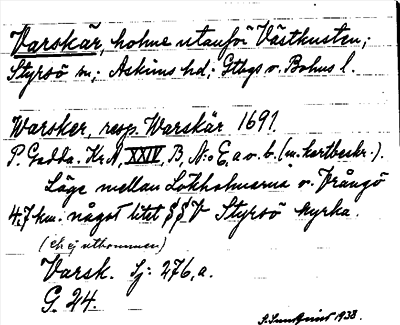 Varskär, holme utanför Västkusten;
Styrsö sn; Askims hd; Gtbgs o. Bohus l.
Warsker, resp. Warskär 1691.
P. Gedda. Kr A, XXIV, B, N:o E, a o. b. (m. kartbeskr.).
Läge mellan Lökholmarna o. Vrångö
4.7 km. något litet SSV Styrsö kyrka.
(ch. ej utkommen)
Varsk. Sj: 276, a.
G. 24.
S. Sundqvist 1938.